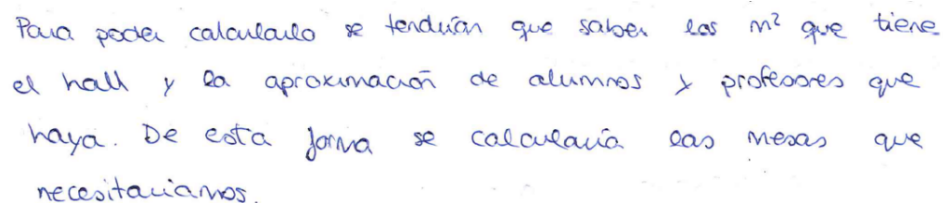 Para poder calcularlo se tendrían que saber los m² que tiene
el hall y la aproximación de alumnos y profesores que
haya. De esta forma se calcularía las mesas que
necesitaríamos.